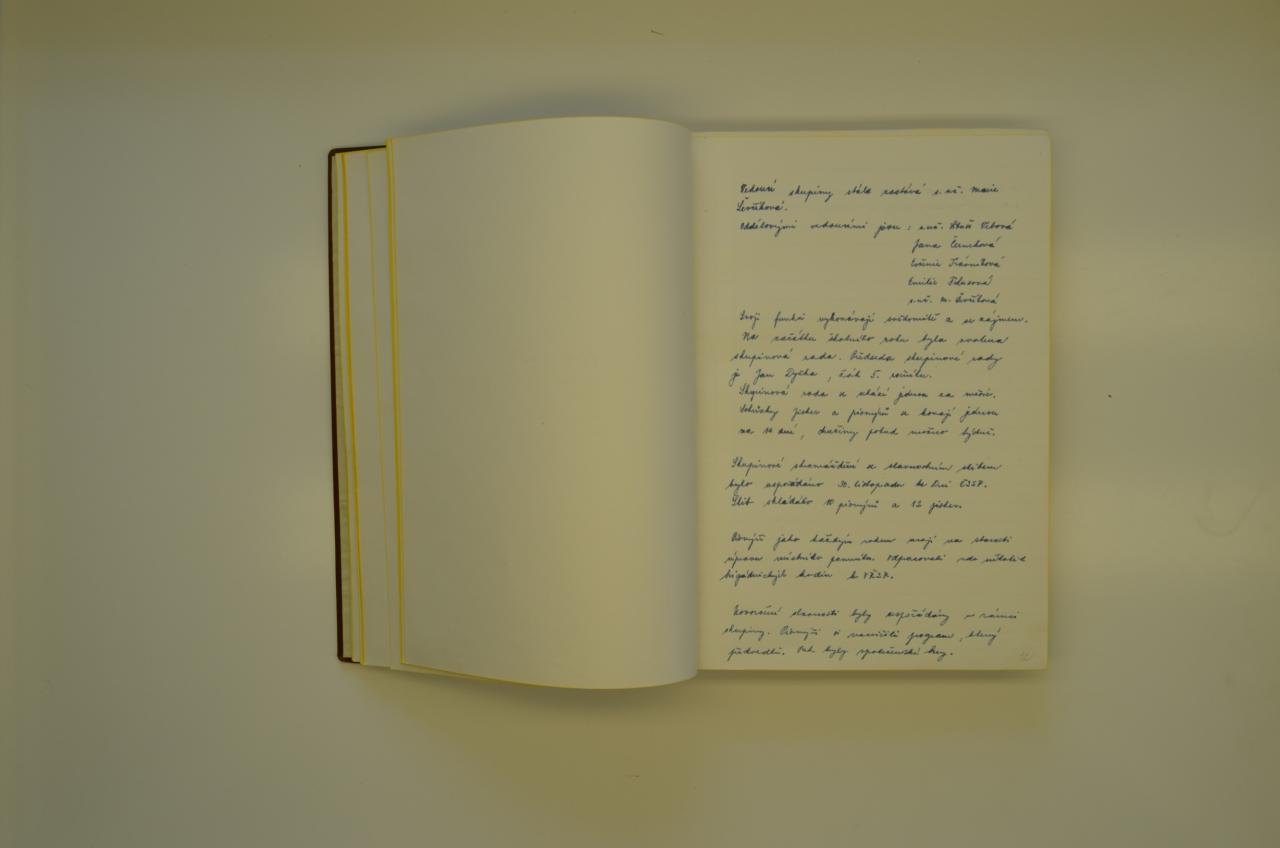 Vedoucí skupiny stále zastává s. uč. Marie
Ševčíková.
Oddílovými vedoucími jsou : s. uč.
Jana
Emilie
s. uč. M. Ševčíková
Svoji funkci vykonávají svědomitě a se zájmem.
Na začátku školního roku byla zvolena
skupinová rada. Předseda skupinové rady
je Jan Dyčka, žák 5. ročníku.
Skupinová rada se schází jednou za měsíc.
Schůzky jisker a pionýrů se konají jednou
za 14 dní, družiny pokud možno týdně.
Skupinové shromáždění se slavnostním slibem
bylo uspořádáno 30. listopadu ke Dni ČSSP.
Slib skládalo 10 pionýrů a 12 jisker.
Pionýři jako každým rokem mají na starosti
úpravu místního pomníku. Odpracovali zde několik
brigádnických hodin k VŘSR.
Novoroční slavnosti byly uspořádány v rámci
skupiny. Pionýři si nacvičili program, který
předvedli. Pak byly společenské hry.
12